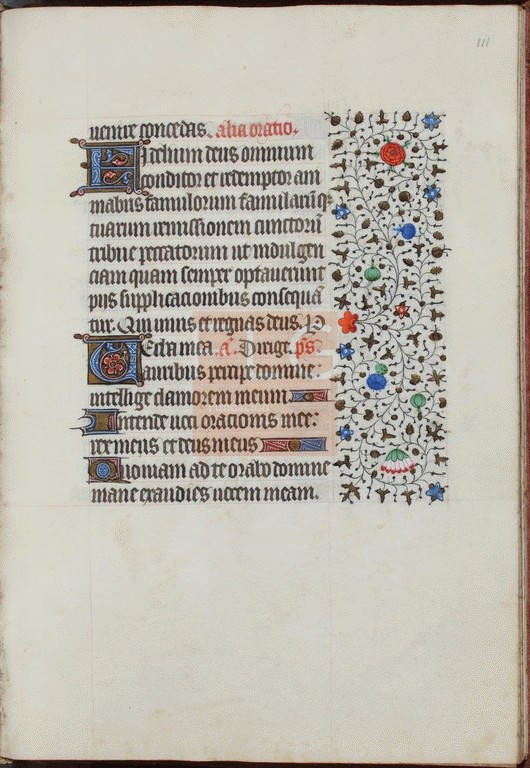 111
uenire concedas. alia oratio.
Fidelium deus omnium
conditor et redemptor ani
mabus famulorum famularūq;
tuarum remissionem cunctorū
tribue peccatorum ut indulgen
ciam quam semper optauerunt
piis supplicacionibus consequā
tur. Qui uiuis et regnas deus. P
Uerba mea. a. Dirige. ps.
auribus percipe domine:
intellige clamorem meum
Intende uoci oracionis mee:
rex meus et deus meus
Quoniam ad te orabo domine
mane exaudies uocem meam.